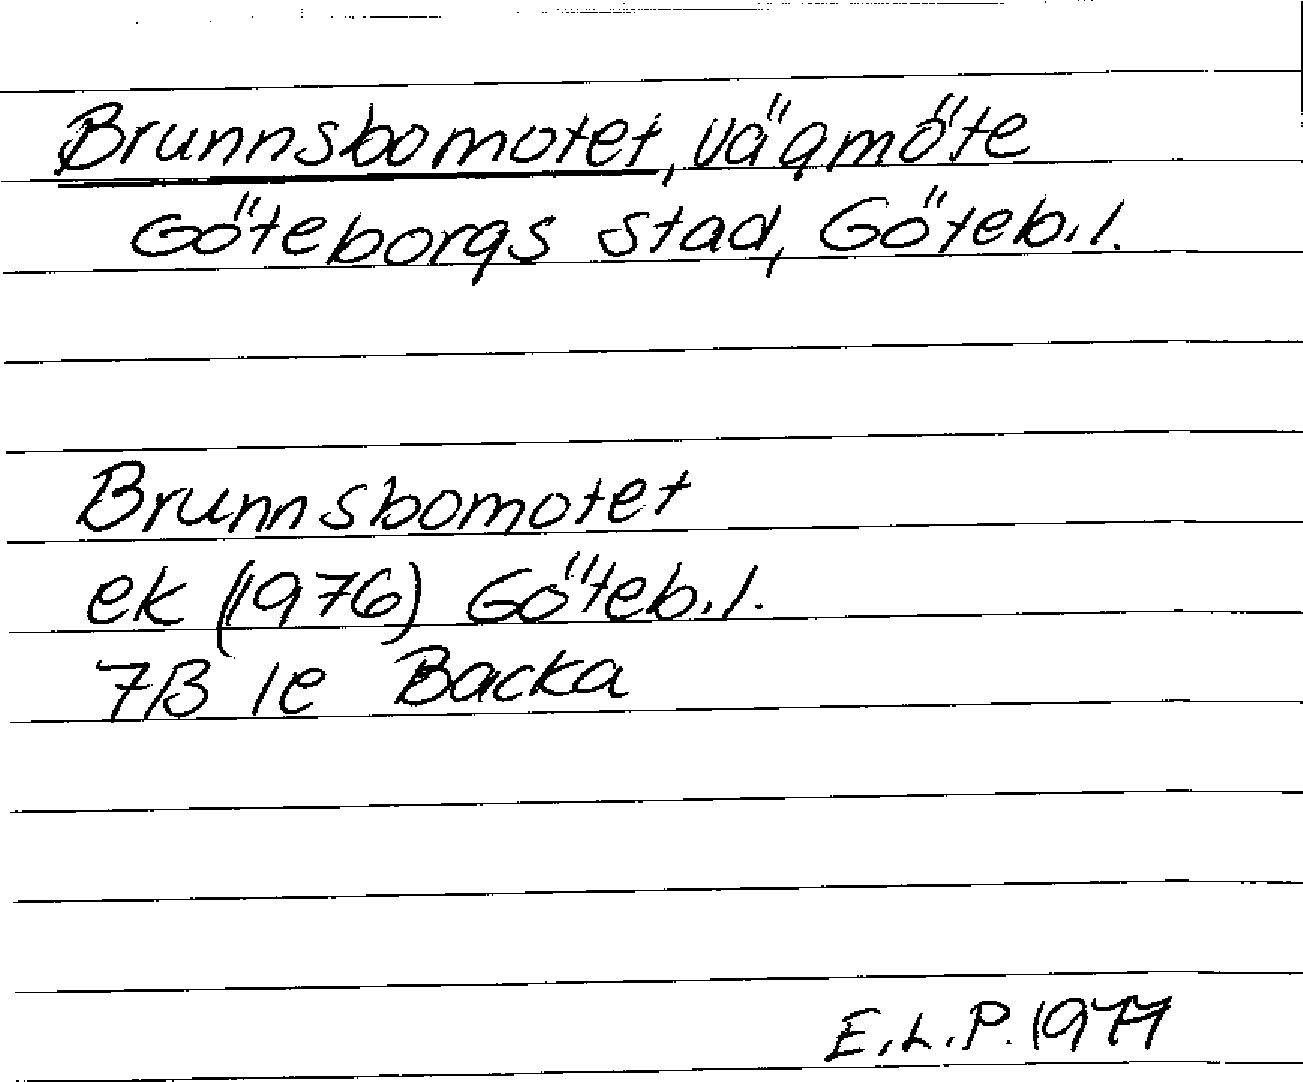 Brunnsbomotet, vägmöte
Göteborgs stad, Göteb.l.
Brunnsbomotet
ek (1976) Göteb.l.
7B 1e Backa
E.L.P. 1977